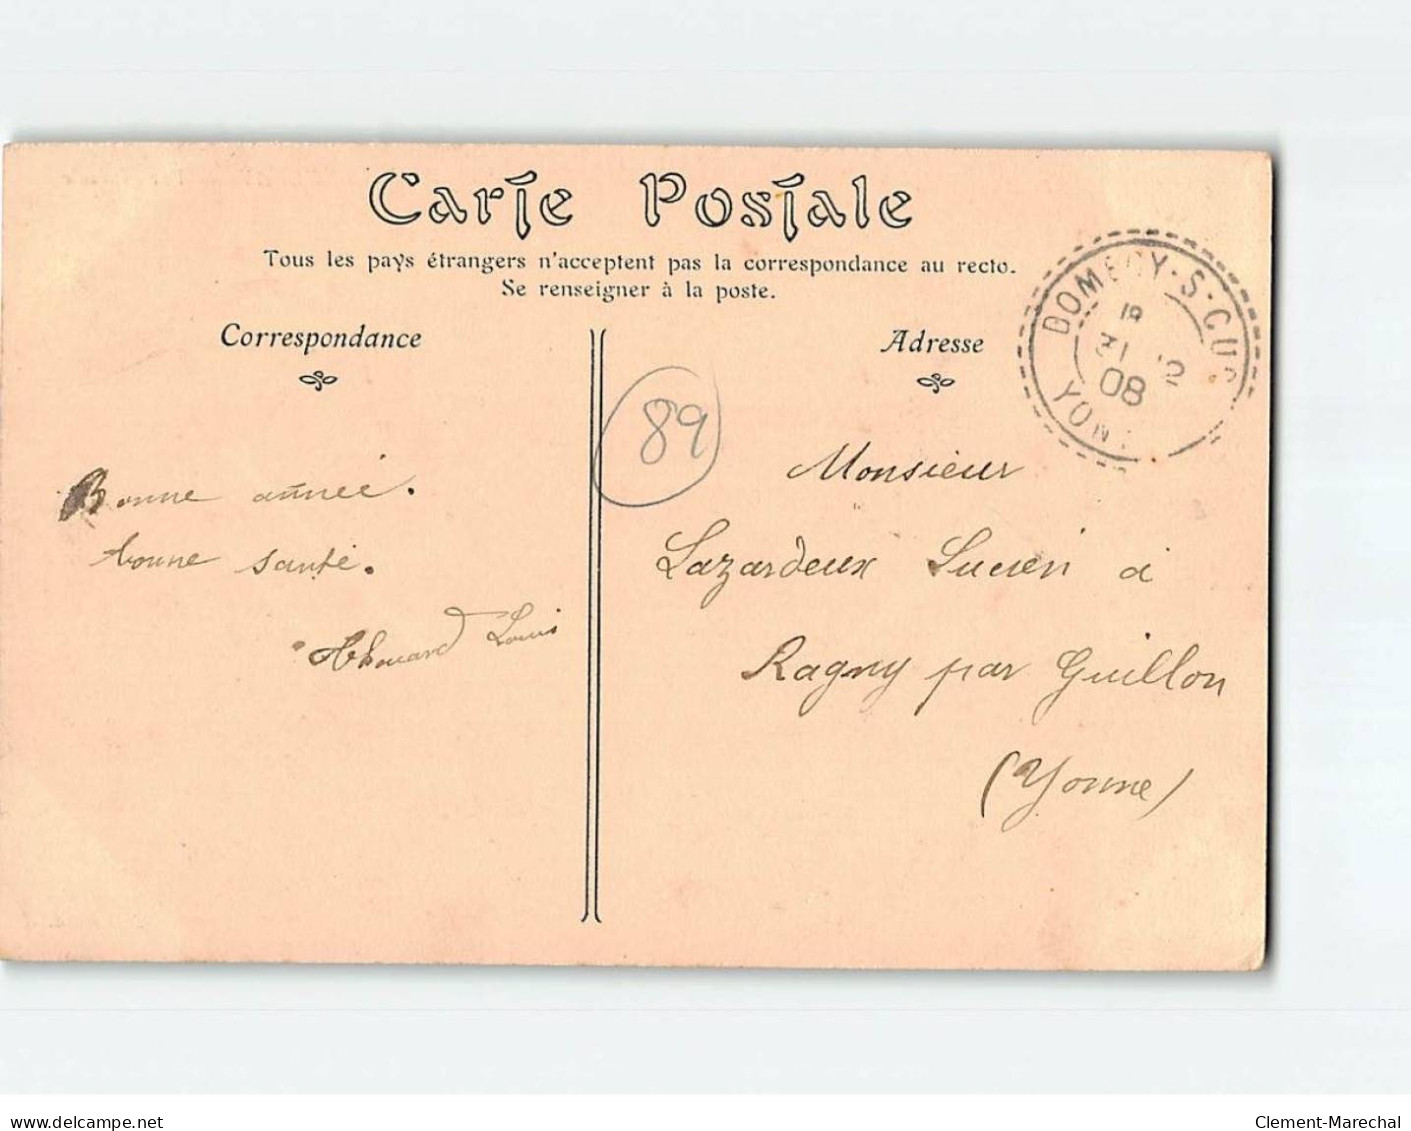 Carte Postale
Tous les pays étrangers n'acceptent pas la correspondance au recto.
Se renseigner à la poste.
Correspondance
Adresse
DOMECY·S·CU
YONN
31 12
08
89
Bonne année.
bonne santé.
Louis
Monsieur
Lazardeux Lucien à
Ragny par Guillon
(Yonne)
delcampe.net
Clement-Marechal